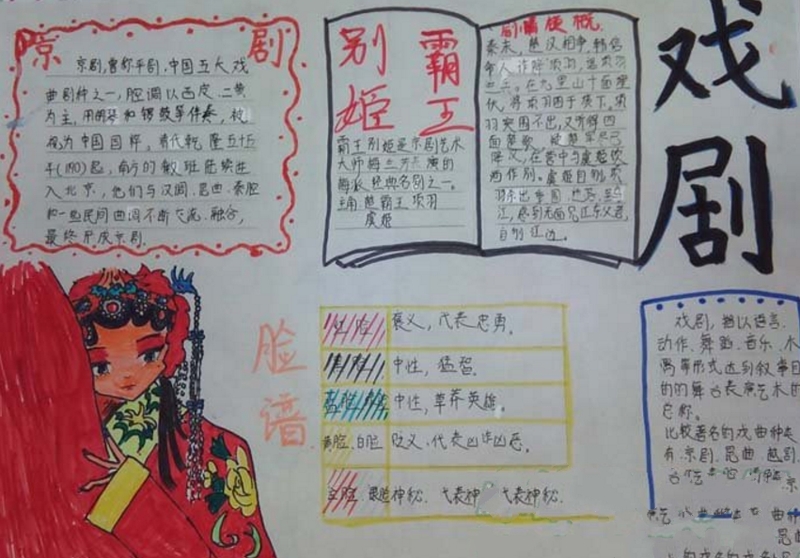 京剧
京剧,曾称平剧,中国五大戏
曲剧种之一,腔调以西皮、二黄
为主,用胡琴和锣鼓等伴奏,被
视为中国国粹,清代乾隆五十五
年(1790)起,南方的徽班陆续进
入北京,他们与汉调、昆曲、秦腔
和一些民间曲调不断交流、融合,
最终形成京剧.
霸王
别姬
霸王别姬是京剧艺术
大师梅兰芳表演的
梅派经典名剧之一。
主角
虞姬
剧情梗概
秦末,楚汉相争,韩信
在九里山十面埋
伏,将项羽困于垓下。项
羽突围不出,又听得四
面楚歌
在营中与虞姬饮
酒作别。虞姬自刎,项
江,感到无面见江东父老,
自刎江边。
戏剧
脸谱
红脸 褒义,代表忠勇。
黑脸 中性,猛智。
中性,草莽英雄。
黄脸、白脸 贬义,代表凶诈凶恶。
金脸 银脸 神秘,代表神 代表神秘.
戏剧,指以语言、
动作、舞蹈、音乐、木
偶等形式达到叙事目
的的舞台表演艺术的
总称。
比较著名的戏曲种类
有京剧、昆曲、越剧、